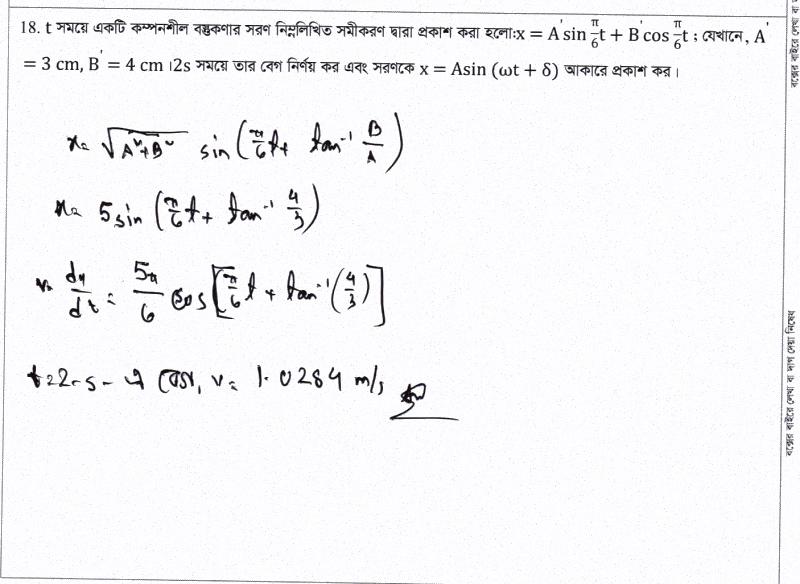 18. t সময়ে একটি কম্পনশীল বস্তুকণার সরণ নিম্নলিখিত সমীকরণ দ্বারা প্রকাশ করা হলোঃx = A'sin π/6 t + B'cos π/6 t ; যেখানে, A'
= 3 cm, B' = 4 cm ।2s সময়ে তার বেগ নির্ণয় কর এবং সরণকে x = Asin (ωt + δ) আকারে প্রকাশ কর।
x = √A²+B² sin (π/6 t + tan⁻¹ B/A)
x = 5 sin (π/6 t + tan⁻¹ 4/3)
v = dx/dt = 5π/6 cos [π/6 t + tan⁻¹ (4/3)]
t=2 s - এ বেগ, v = 1.0284 m/s
বক্সের বাইরে লেখা বা দাগ দেয়া নিষেধ